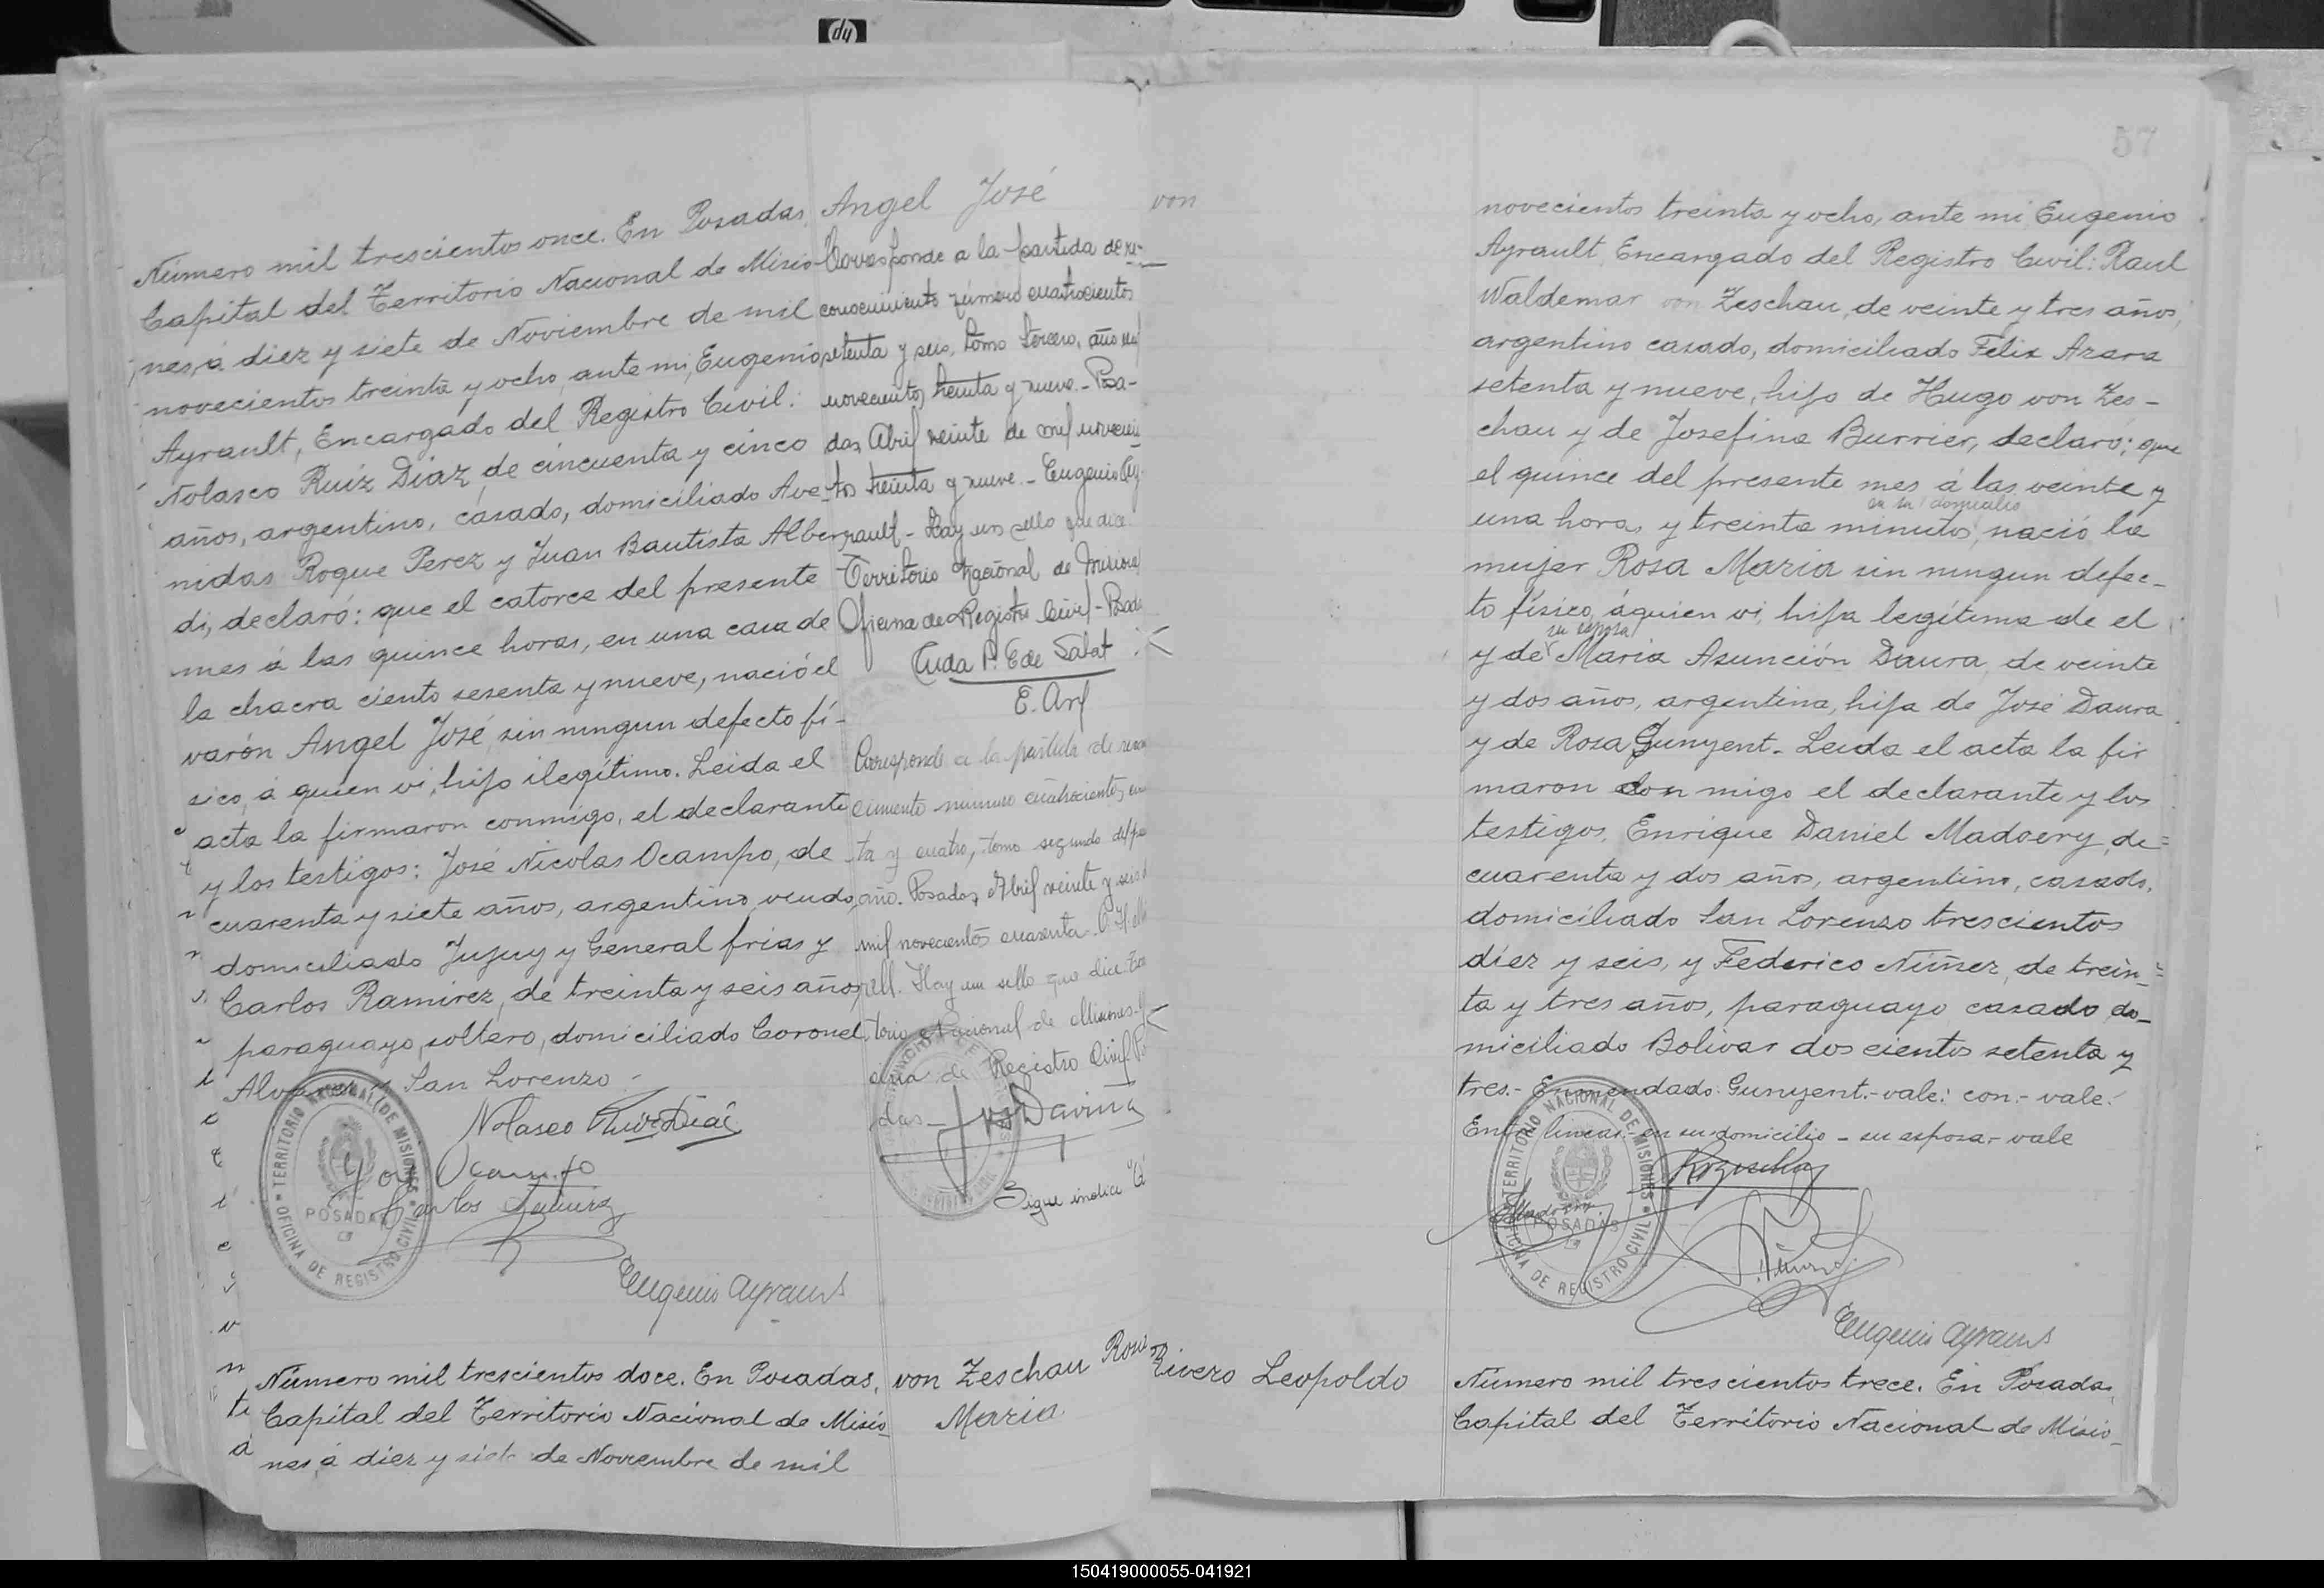 hp
Número mil trescientos once. En Posadas,
Capital del Territorio Nacional de Misio-
nes, á diez y siete de Noviembre de mil
novecientos treinta y ocho, ante mi, Eugenio
Ayrault, Encargado del Registro Civil:
Nolasco Ruíz Díaz, de cincuenta y cinco
años, argentino, casado, domiciliado Ave-
nidas Roque Perez y Juan Bautista Alber-
di, declaró: que el catorce del presente
mes á las quince horas, en una casa de
la chacra ciento sesenta y nueve, nació el
varón Angel José, sin ningun defecto fí-
sico, á quien vi, hijo ilegítimo. Leida el
acta la firmaron conmigo, el declarante
y los testigos: José Nicolas Ocampo, de
cuarenta y siete años, argentino, viudo,
domiciliado Jujuy y General frias y
Carlos Ramirez, de treinta y seis años,
paraguayo, soltero, domiciliado Coronel
Alvarez y San Lorenzo.-
Nolasco Ruiz Diaz
José Ocampo
Carlos Ramirez
Eugenio Ayrault
TERRITORIO NACIONAL DE MISIONES
POSADAS
OFICINA DE REGISTRO CIVIL
Angel José
Corresponde a la partida de re-
conocimiento número cuatrocientos
setenta y seis, tomo tercero, año mil
novecientos treinta y nueve.- Posa-
das, Abril veinte de mil novecien
tos treinta y nueve.- Eugenio Ay-
rault - Hay un sello que dice:
Territorio Nacional de Misiones
Oficina de Registro Civil - Posadas
E. Ay
Corresponde a la partida de recono
cimiento numero cuatrocientos
ta y cuatro, tomo segundo del pte
año. Posadas, Abril veinte y seis de
mil novecientos cuarenta.
Hay un sello que dice: Terri
torio Nacional de Misiones. Ofi
cina de Registro Civil Po
das
Sigue indice
Número mil trescientos doce. En Posadas,
Capital del Territorio Nacional de Misio
nes, á diez y siete de Noviembre de mil
von Zeschau Rosa
Maria
57
von
novecientos treinta y ocho, ante mi Eugenio
Ayrault, Encargado del Registro Civil: Raul
Waldemar von Zeschau, de veinte y tres años,
argentino casado, domiciliado Felix Azara
setenta y nueve, hijo de Hugo von Zes-
chau y de Josefina Burrier, declaró; que
el quince del presente mes á las veinte y
en su domicilio
una horas y treinta minutos, nació la
mujer Rosa Maria sin ningun defec-
to físico, áquien vi, hija legítima de el
su esposa
y de Maria Asunción Daura, de veinte
y dos años, argentina, hija de José Daura
y de Rosa Gunyent. Leida el acta la fir
maron con migo el declarante y los
testigos, Enrique Daniel Madoery, de
cuarenta y dos años, argentino, casado,
domiciliado San Lorenzo trescientos
díez y seis, y Federico Núñez, de trein-
ta y tres años, paraguayo casado, do-
miciliado Bolivar dos cientos setenta y
tres.- Enmendado: Gunyent.- vale: con.- vale.
Entre lineas: en su domicilio - su esposa.- vale
TERRITORIO NACIONAL DE MISIONES
POSADAS
OFICINA DE REGISTRO CIVIL
Eugenio Ayrault
Rivero Leopoldo
Número mil trescientos trece. En Posadas,
Capital del Territorio Nacional de Misio-
150419000055-041921